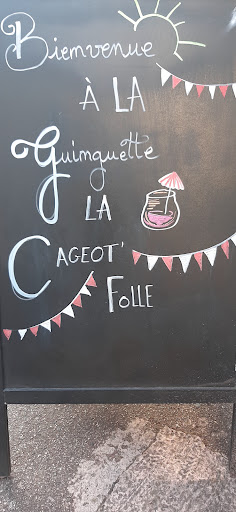 Bienvenue
À LA
Guinguette
LA
CAGEOT'
FOLLE